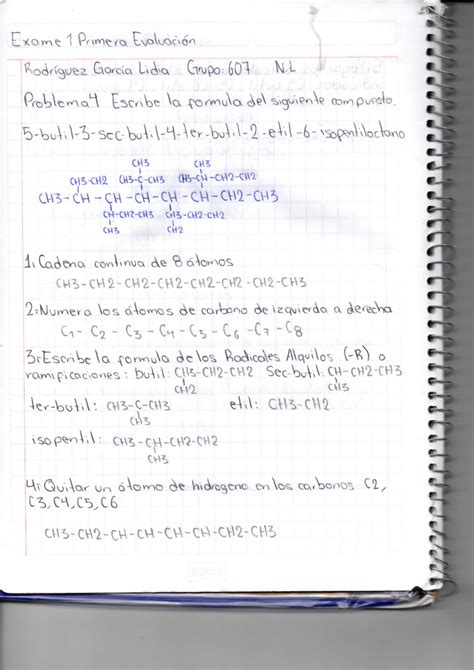 Exame 1 Primera Evaluación
Rodríguez García Lidia Grupo: 607 N.L
Problema 4 Escribe la formula del siguiente compuesto.
5-butil-3-sec-butil-4-ter-butil-2-etil-6-isopentiloctano
CH3 CH3
CH3-CH2 CH3-C-CH3 CH3-CH-CH2-CH2
CH3-CH-CH-CH-CH-CH-CH2-CH3
CH-CH2-CH3 CH3-CH2-CH2
CH3 CH2
1: Cadena continua de 8 átomos
CH3-CH2-CH2-CH2-CH2-CH2-CH2-CH3
2: Numera los átomos de carbono de izquierda a derecha
C1-C2-C3-C4-C5-C6-C7-C8
3: Escribe la formula de los Radicales Alquilos (-R) o
ramificaciones: butil: CH3-CH2-CH2 Sec-butil: CH-CH2-CH3
CH2 CH3
ter-butil: CH3-C-CH3 etil: CH3-CH2
CH3
isopentil: CH3-CH-CH2-CH2
CH3
4: Quitar un átomo de hidrogeno en los carbonos C2,
C3, C4, C5, C6
CH3-CH2-CH-CH-CH-CH-CH2-CH3